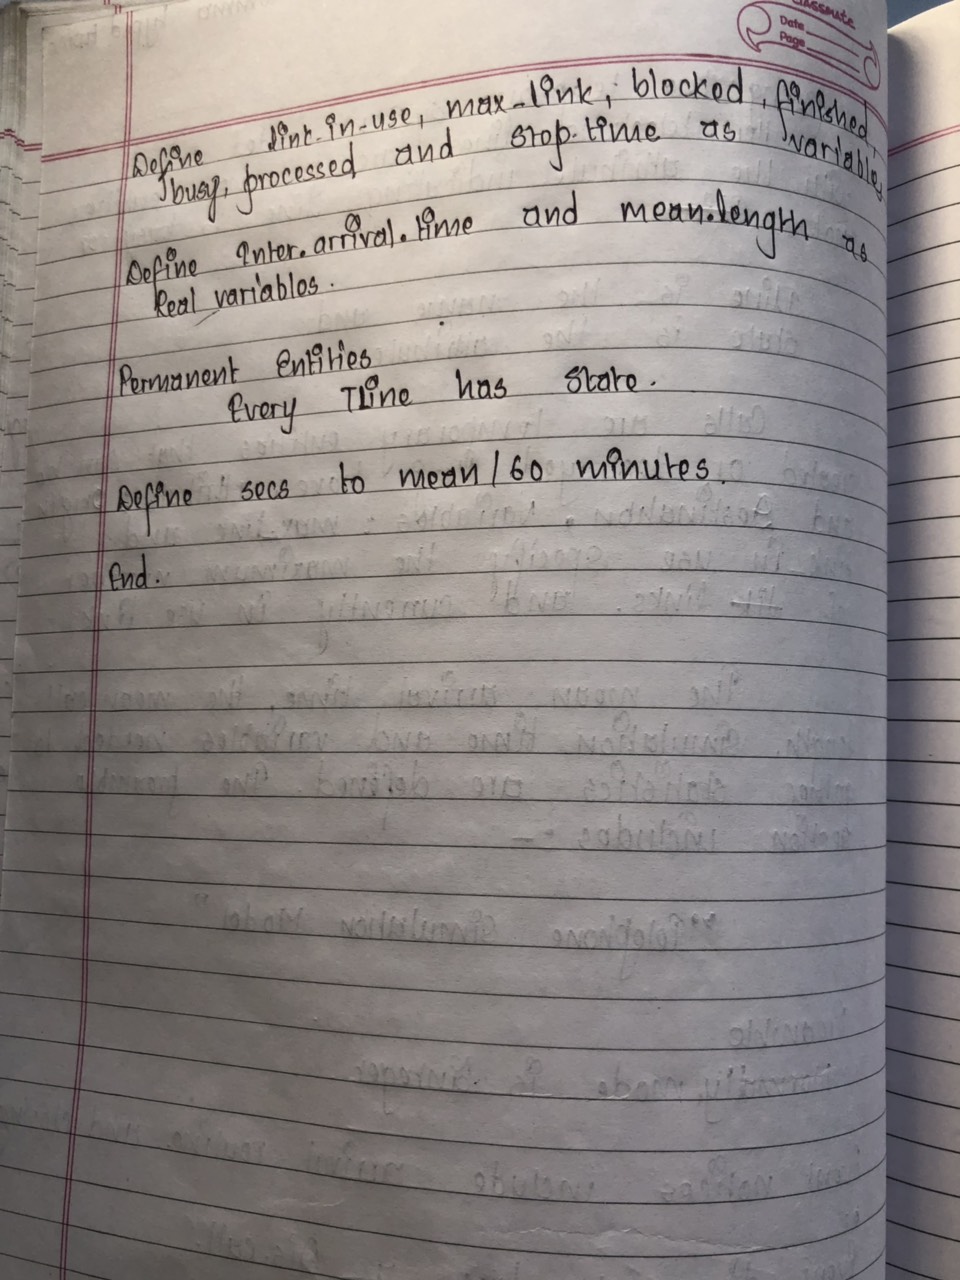 classmate
Date
Page
Define link-in-use, max-link, blocked, finished,
busy, processed and stop.time as variable,
Define inter.arrival.time and mean.length as
Real variables.
Permanent Entities
Every TLine has state.
Define secs to mean/60 minutes.
End.